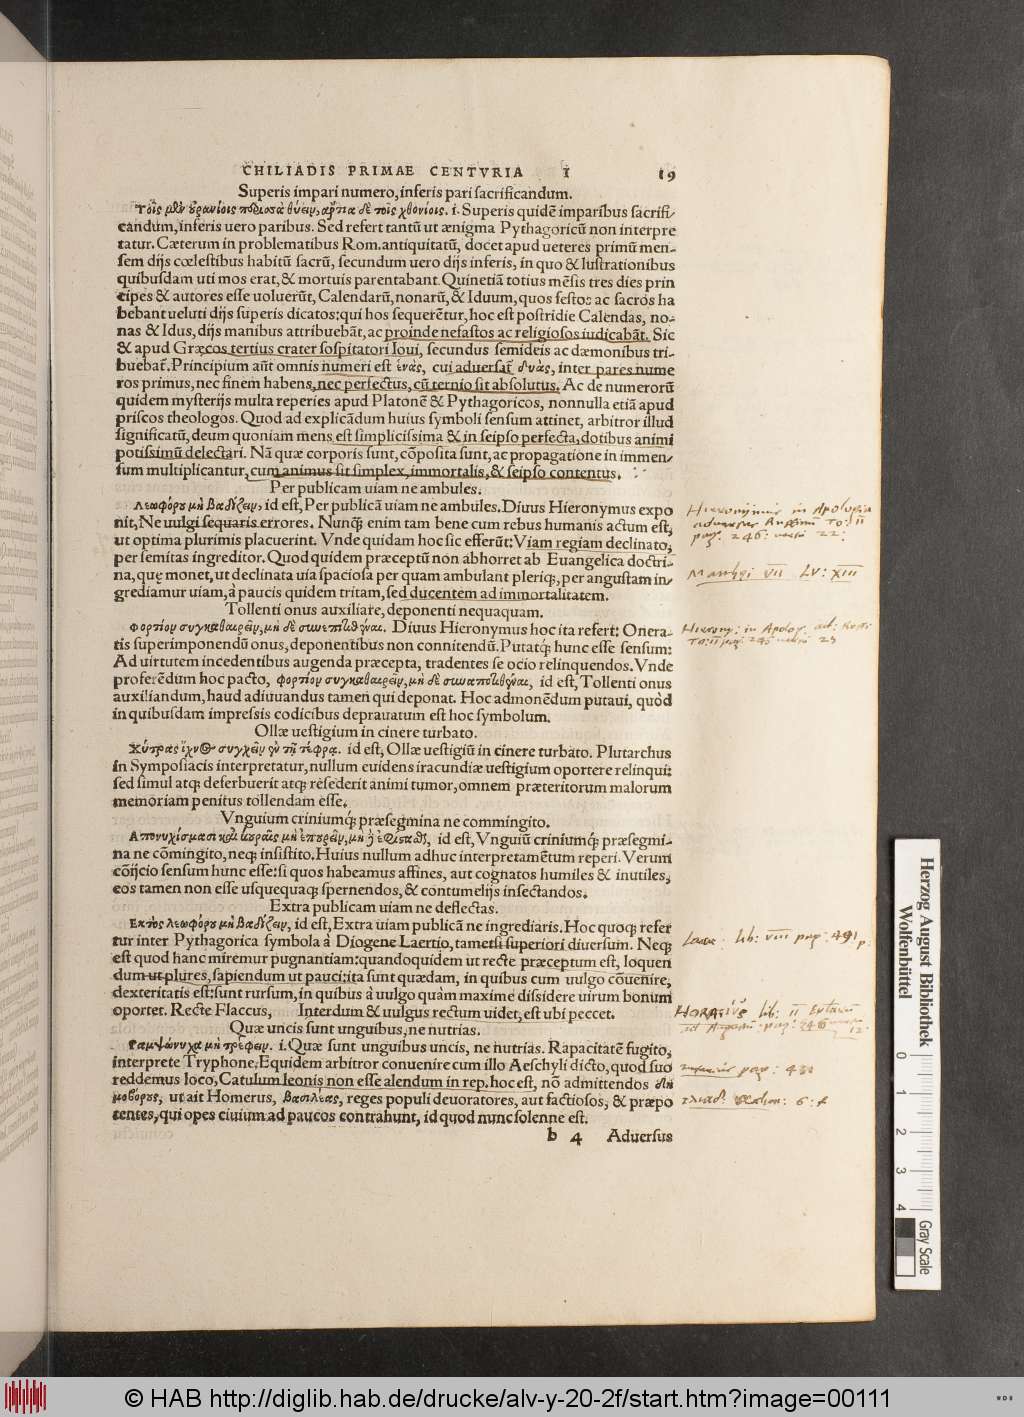 CHILIADIS PRIMAE CENTVRIA I 19
Superis impari numero, inferis pari sacrificandum.
Τοῖς μὲν οὐρανίοις περισσὰ θύειν, ἄρτια δὲ τοῖς χθονίοις. i. Superis quidē imparibus sacrifi-
candum, inferis uero paribus. Sed refert tantū ut ænigma Pythagoricū non interpre
tatur. Cæterum in problematibus Rom. antiquitatū, docet apud ueteres primū men-
sem dijs cœlestibus habitū sacrū, secundum uero dijs inferis, in quo & lustrationibus
quibusdam uti mos erat, & mortuis parentabant. Quinetiā totius mēsis tres dies prin
cipes & autores esse uoluerūt, Calendarū, nonarū, & Iduum, quos festos ac sacros ha
bebant ueluti dijs superis dicatos: qui hos sequerētur, hoc est postridie Calendas, no-
nas & Idus, dijs manibus attribuebāt, ac proinde nefastos ac religiosos iudicabāt. Sic
& apud Græcos tertius crater sospitatori Ioui, secundus semideis ac dæmonibus tri-
buebat̄. Principium aūt omnis numeri est ἑνάς, cui aduersat̄ δυὰς, inter pares nume
ros primus, nec finem habens, nec perfectus, cū ternio sit absolutus. Ac de numerorū
quidem mysterijs multa reperies apud Platonē & Pythagoricos, nonnulla etiā apud
priscos theologos. Quod ad explicādum huius symboli sensum attinet, arbitror illud
significatū, deum quoniam mens est simplicissima & in seipso perfecta, dotibus animi
potissimū delectari. Nā quæ corporis sunt, cōposita sunt, ac propagatione in immen-
sum multiplicantur, cum animus sit simplex, immortalis, & seipso contentus.
Per publicam uiam ne ambules.
Λεωφόρου μὴ βαδίζειν, id est, Per publicā uiam ne ambules. Diuus Hieronymus expo
nit, Ne uulgi sequaris errores. Nunq̄ enim tam bene cum rebus humanis actum est,
ut optima plurimis placuerint. Vnde quidam hoc sic efferūt: Viam regiam declinato,
per semitas ingreditor. Quod quidem præceptū non abhorret ab Euangelica doctri-
na, quę monet, ut declinata uia spaciosa per quam ambulant pleriq;, per angustam in-
grediamur uiam, à paucis quidem tritam, sed ducentem ad immortalitatem.
Tollenti onus auxiliare, deponenti nequaquam.
φορτίον συγκαθαιρεῖν, μὴ δὲ συνεπιτιθέναι. Diuus Hieronymus hoc ita refert: Onera-
tis superimponendū onus, deponentibus non connitendū. Putatq; hunc esse sensum:
Ad uirtutem incedentibus augenda præcepta, tradentes se ocio relinquendos. Vnde
proferēdum hoc pacto, φορτίον συγκαθαιρεῖν, μὴ δὲ συναποτιθέναι, id est, Tollenti onus
auxiliandum, haud adiuuandus tamen qui deponat. Hoc admonēdum putaui, quòd
in quibusdam impressis codicibus deprauatum est hoc symbolum.
Ollæ uestigium in cinere turbato.
Χύτρας ἴχνος συγχεῖν ἐν τῇ τέφρᾳ. id est, Ollæ uestigiū in cinere turbato. Plutarchus
in Symposiacis interpretatur, nullum euidens iracundiæ uestigium oportere relinqui:
sed simul atq; deferbuerit atq; resederit animi tumor, omnem præteritorum malorum
memoriam penitus tollendam esse.
Vnguium criniumq́; præsegmina ne commingito.
Απονυχίσμασι καὶ κουραῖς μὴ ἐπουρεῖν, μὴ δὲ ἐφίστασθαι, id est, Vnguiū criniumq́; præsegmi-
na ne cōmingito, neq; insistito. Huius nullum adhuc interpretamētum reperi. Verum
cōijcio sensum hunc esse: si quos habeamus affines, aut cognatos humiles & inutiles,
eos tamen non esse usquequaq; spernendos, & contumelijs insectandos.
Extra publicam uiam ne deflectas.
Εκτὸς λεωφόρου μὴ βαδίζειν, id est, Extra uiam publicā ne ingrediaris. Hoc quoq; refer
tur inter Pythagorica symbola à Diogene Laertio, tametsi superiori diuersum. Neq;
est quod hanc miremur pugnantiam: quandoquidem ut recte præceptum est, loquen
dum ut plures, sapiendum ut pauci: ita sunt quædam, in quibus cum uulgo cōuenire,
dexteritatis est: sunt rursum, in quibus à uulgo quàm maxime dissidere uirum bonum
oportet. Recte Flaccus, Interdum & uulgus rectum uidet, est ubi peccet.
Quæ uncis sunt unguibus, ne nutrias.
Γαμψώνυχα μὴ τρέφειν. i. Quæ sunt unguibus uncis, ne nutrias. Rapacitatē fugito,
interprete Tryphone. Equidem arbitror conuenire cum illo Aeschyli dicto, quod suo
reddemus loco, Catulum leonis non esse alendum in rep. hoc est, nō admittendos δη
μοβόρους, ut ait Homerus, βασιλέας, reges populi deuoratores, aut factiosos, & præpo
tentes, qui opes ciuium ad paucos contrahunt, id quod nunc solenne est.
b 4 Aduersus
Hieronymus in Apologia
aduersus Ruffinū To: II
pag. 246: 22:
Matthei VII Lv: XIII
Hierony: in Apolog. ad:
To: II pag: 245 23
Laer: lib: VIII pag: 491
HORATIVS lib: II
ad Augustū pag: 246
12:
pag: 430
Herzog August Bibliothek
Wolfenbüttel
0 1 2 3 4
Gray Scale
© HAB http://diglib.hab.de/drucke/alv-y-20-2f/start.htm?image=00111